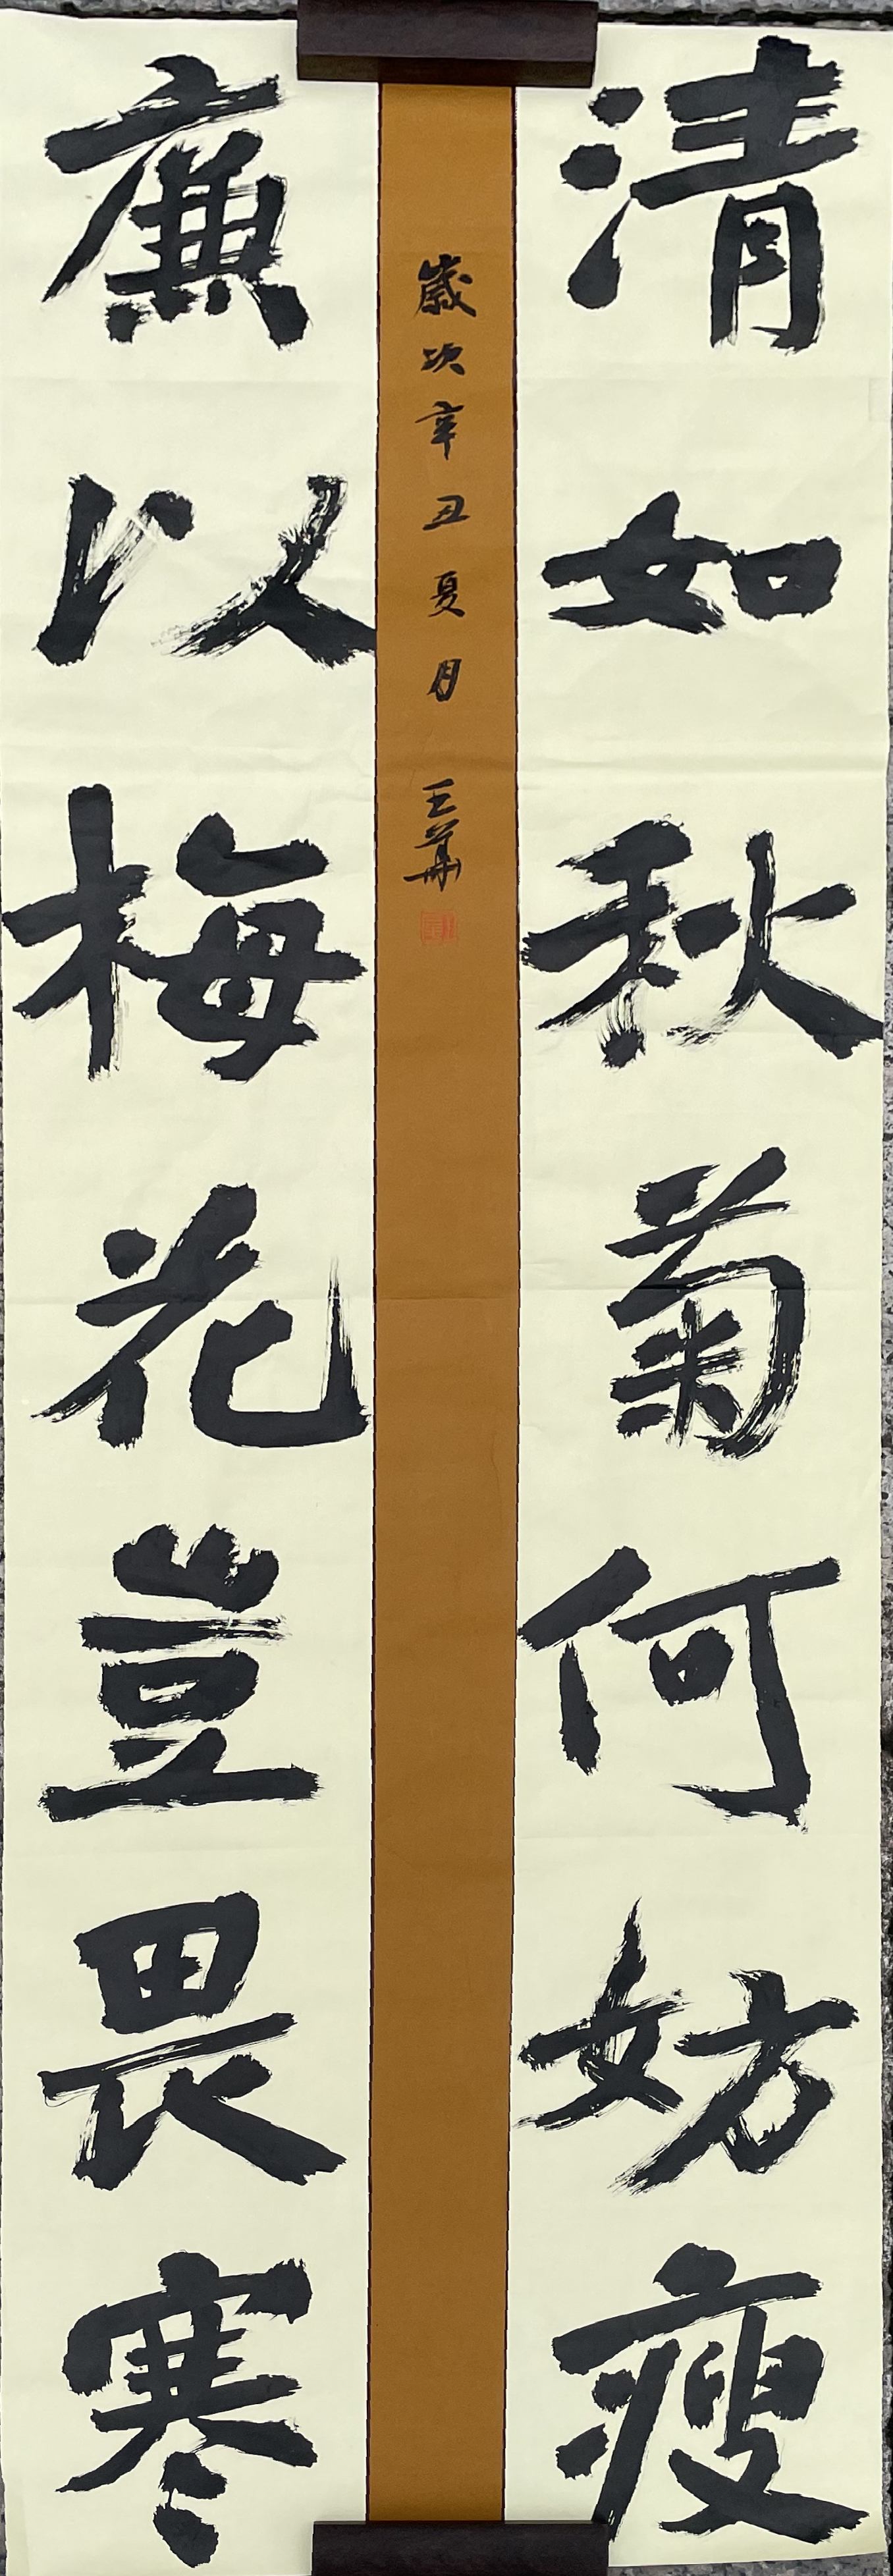 清如秋菊何妨瘦
歲次辛丑夏月 王華
廉以梅花豈畏寒